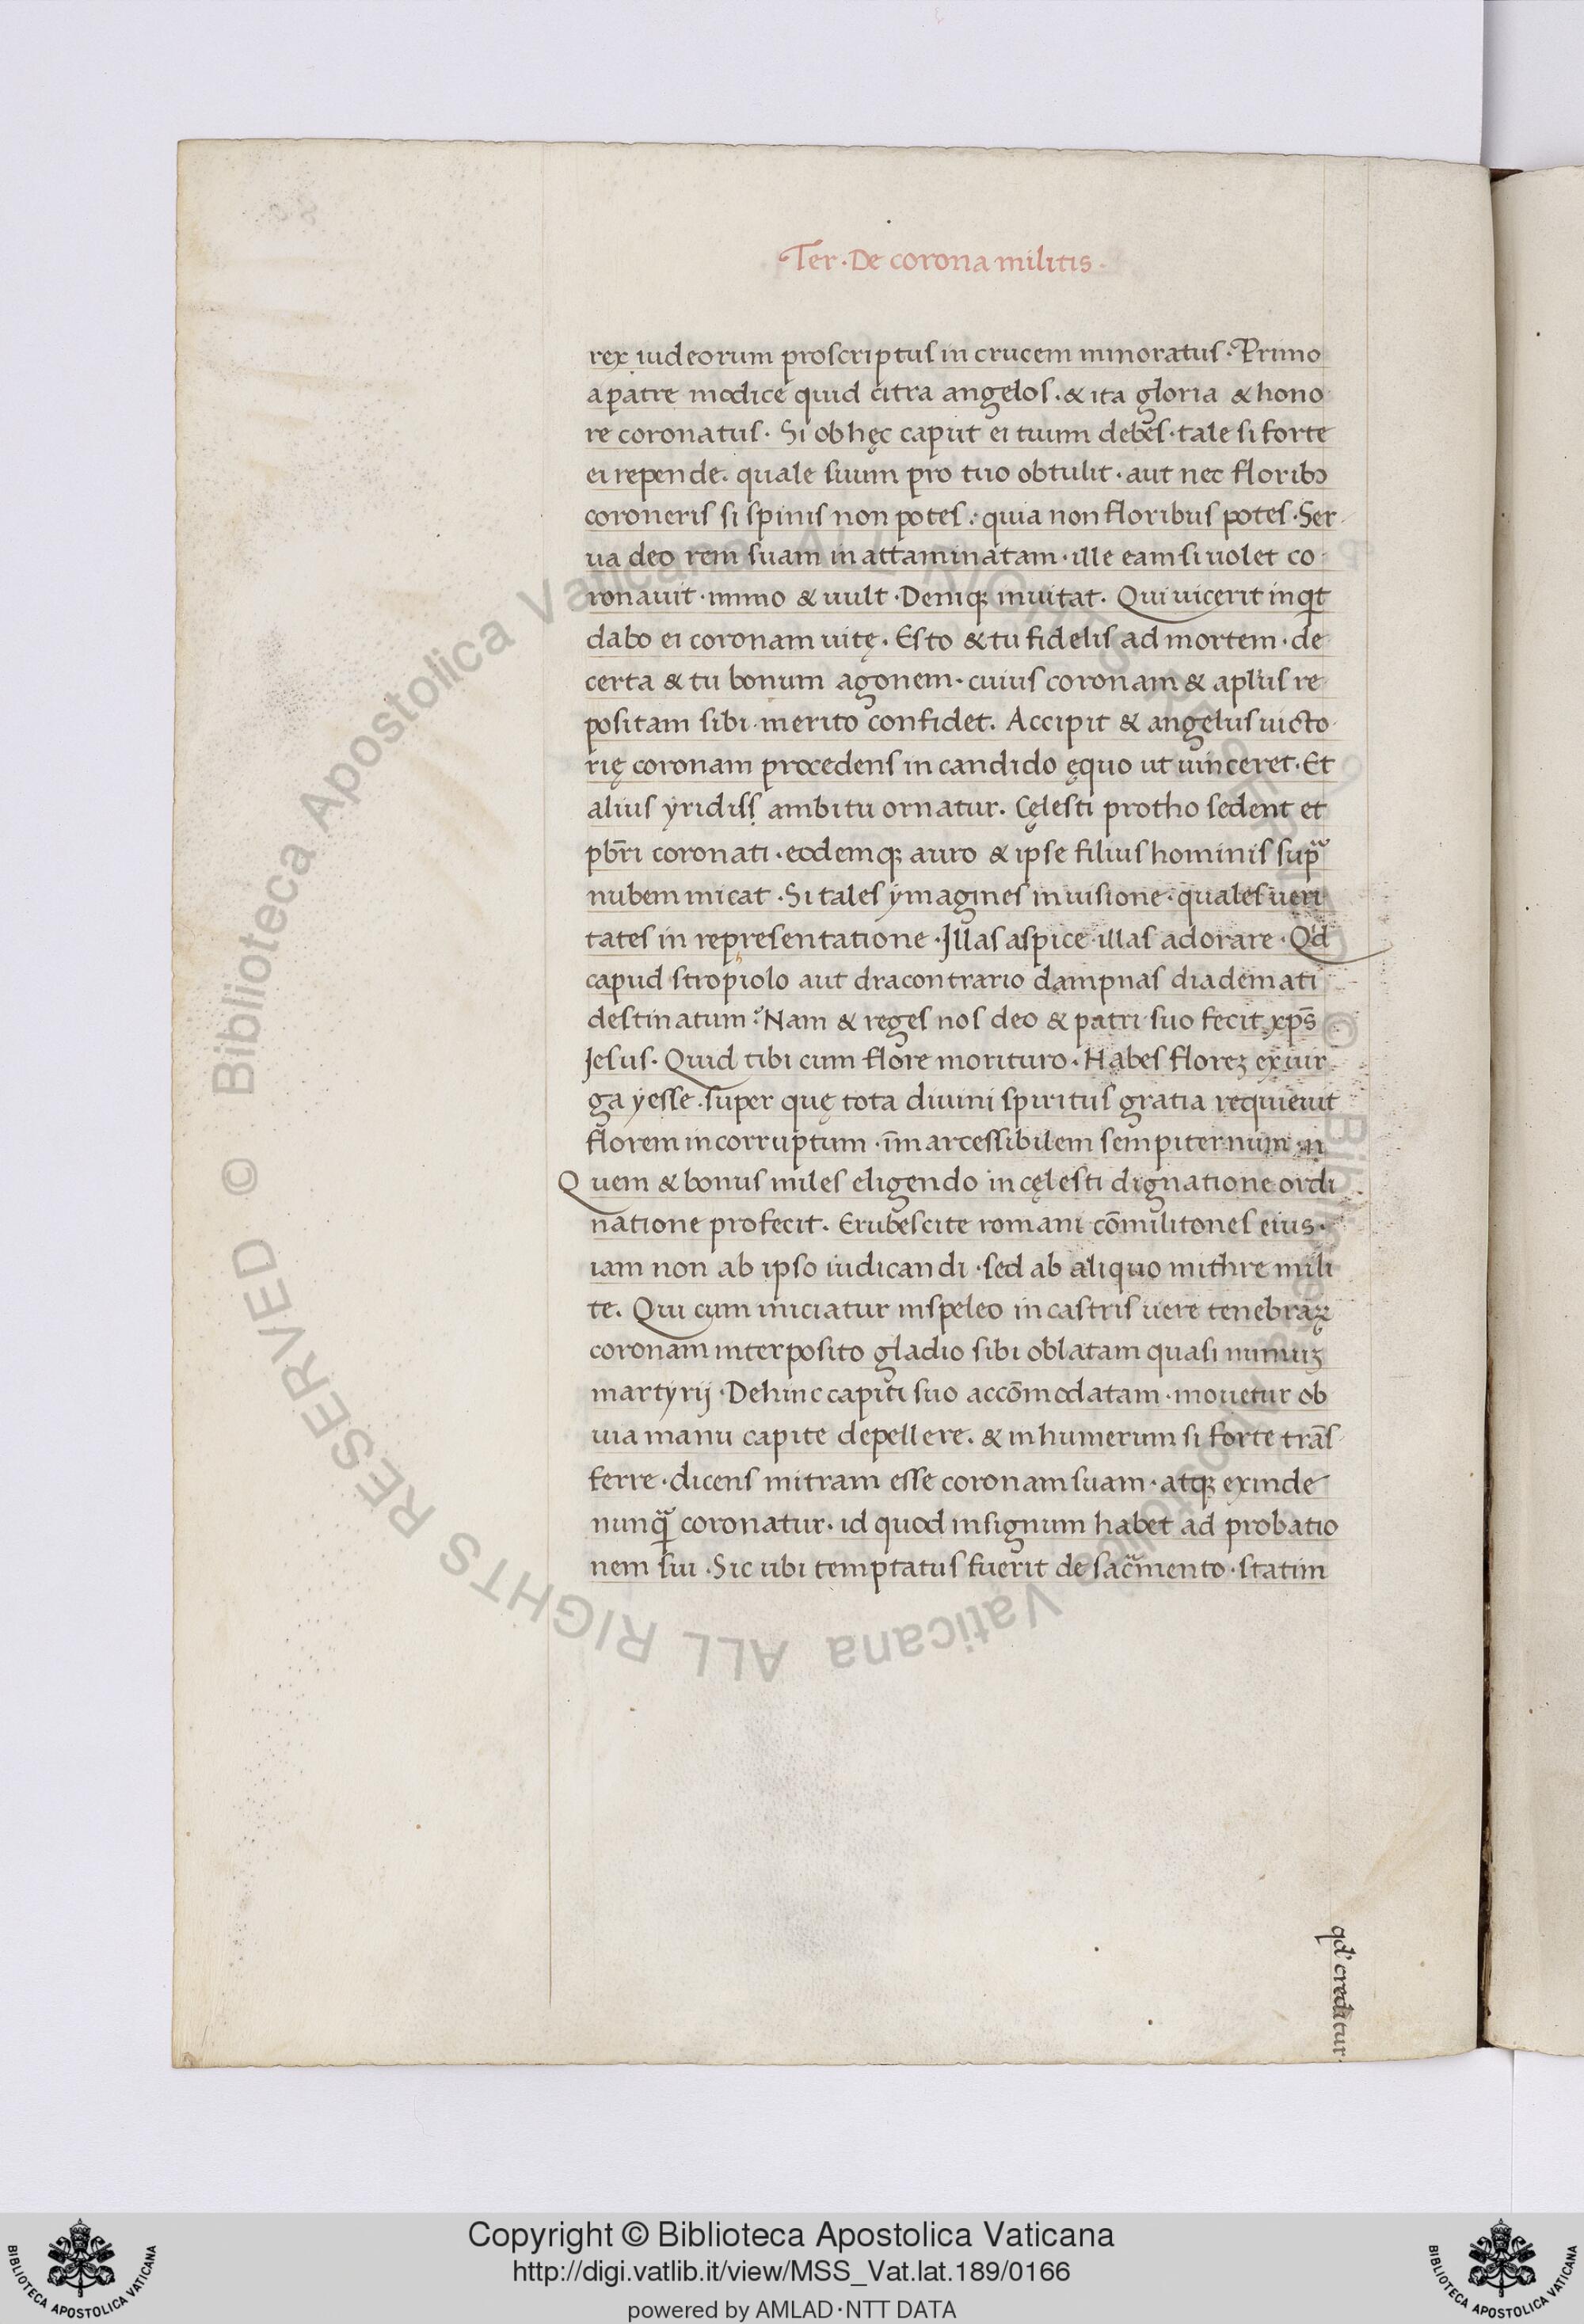 Ter · De corona militis ·
rex iudeorum proscriptus in crucem minoratus · Primo
a patre modice quid citra angelos · & ita gloria & hono
re coronatus · Si ob hęc caput ei tuum debes · tale si forte
ei repende · quale suum pro tuo obtulit · aut nec floribꝫ
coroneris si spinis non potes · quia non floribus potes · Ser
ua deo rem suam inattaminatam · ille eam si uolet co
ronauit · immo & uult · Deniqꝫ inuitat · Qui uicerit inqt
dabo ei coronam uitę · Esto & tu fidelis ad mortem · de
certa & tu bonum agonem · cuius coronam & apl'us re
positam sibi merito confidet · Accipit & angelus uicto
rię coronam procedens in candido ęquo ut uinceret · Et
alius yridiss ambitu ornatur · Cęlesti protho sedent et
pb̄ri coronati · eodemqꝫ auro & ipse filius hominis sup̄
nubem micat · Si tales ymagines in uisione · quales ueri
tates in representatione · Illas aspice · illas adorare · Qd
capud stropiolo aut dracontrario dampnas diademati
destinatum · Nam & reges nos deo & patri suo fecit xp̄s
Jesus · Quid tibi cum flore morituro · Habes floreꝫ ex uir
ga yesse · super quę tota diuini spiritus gratia requieuit
florem incorruptum · īmarcessibilem sempiternum ·
Quem & bonus miles eligendo in cęlesti dignatione ordi
natione profecit · Erubescite romani cōmilitones eius ·
iam non ab ipso iudicandi · sed ab aliquo mithre mili
te · Qui cum iniciatur inspeleo in castris uere tenebraꝝ
coronam interposito gladio sibi oblatam quasi mimuꝫ
martyrij · Dehinc capiti suo accōmodatam · mouetur ob
uia manu capite depellere · & in humerum si forte trās
ferre · dicens mitram esse coronam suam · atqꝫ exinde
nunq̄ coronatur · id quod insignum habet ad probatio
nem sui · Sic ubi temptatus fuerit de sacmento · statim
qd' creditur ·
© Biblioteca Apostolica Vaticana ALL RIGHTS RESERVED © Biblioteca Apostolica Vaticana ALL RIGHTS RESERVED
BIBLIOTECA APOSTOLICA VATICANA
Copyright © Biblioteca Apostolica Vaticana
http://digi.vatlib.it/view/MSS_Vat.lat.189/0166
powered by AMLAD·NTT DATA
BIBLIOTECA APOSTOLICA VATICANA